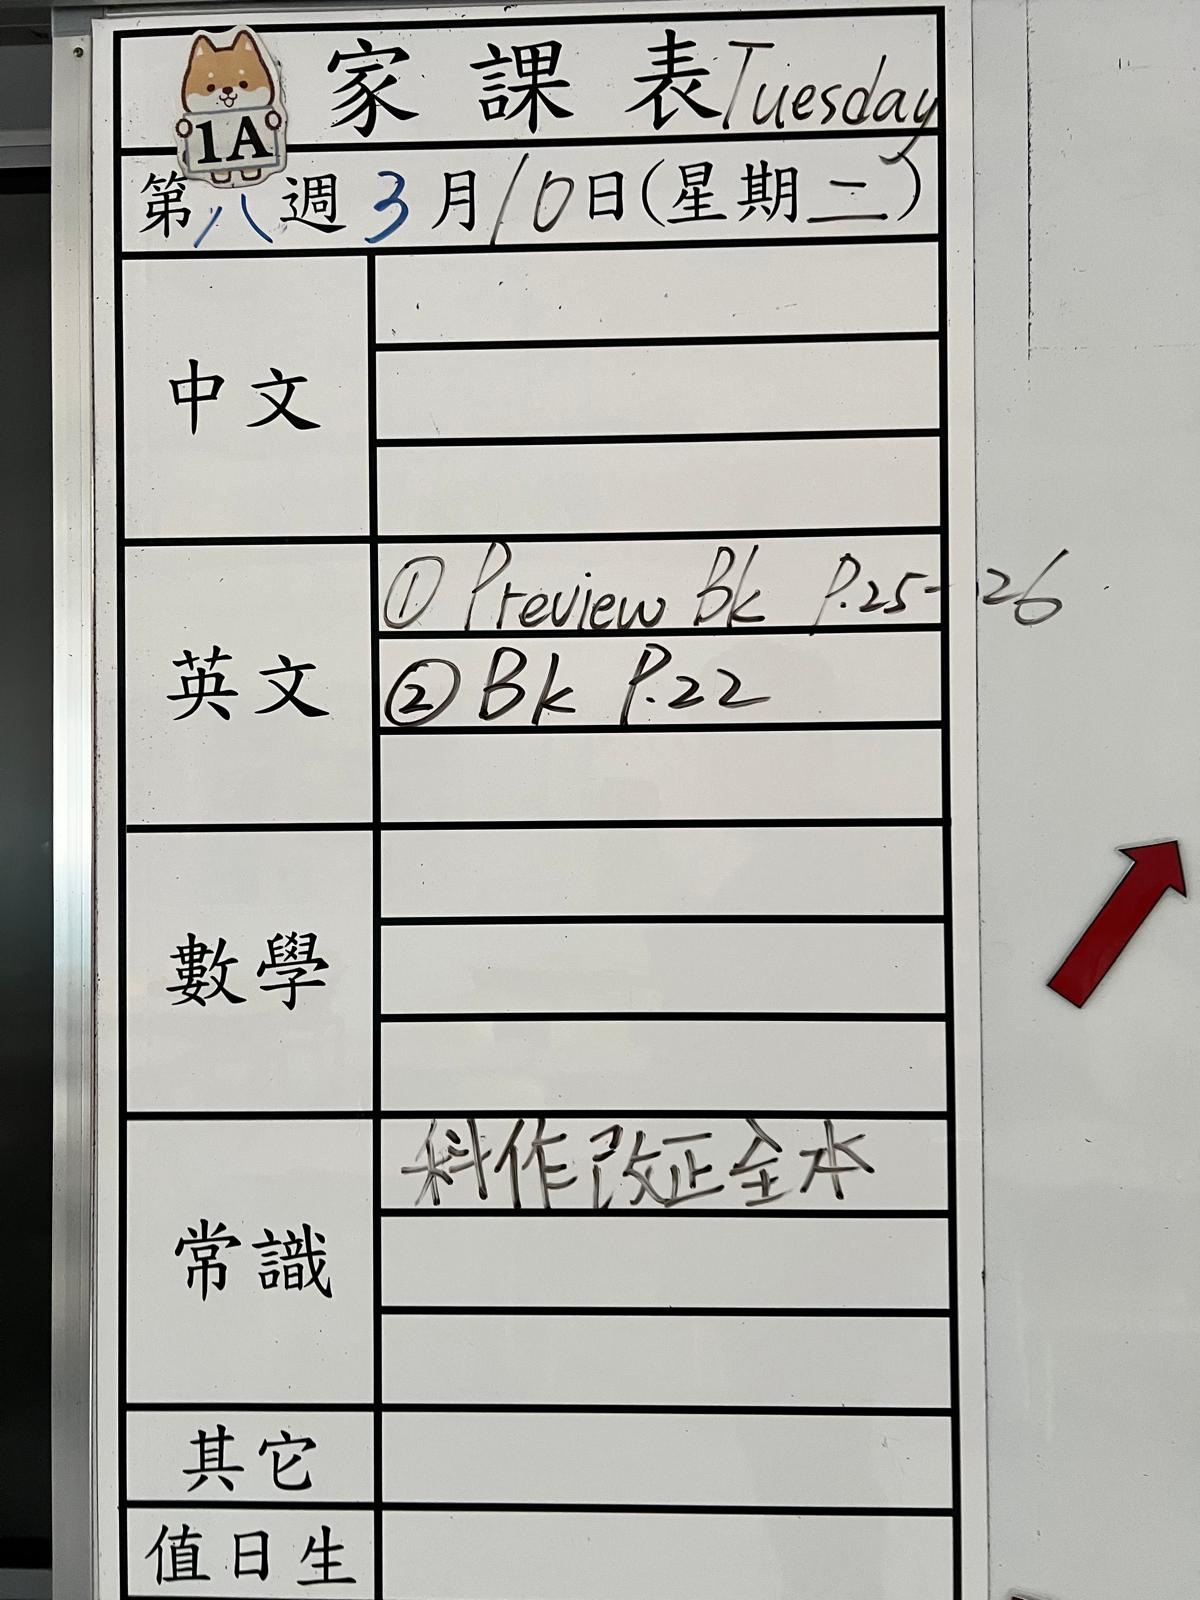 1A
家課表 Tuesday
第八週 3月10日(星期二)
中文
英文
① Preview Bk P.25-26
② Bk P.22
數學
常識
科作改正全本
其它
值日生